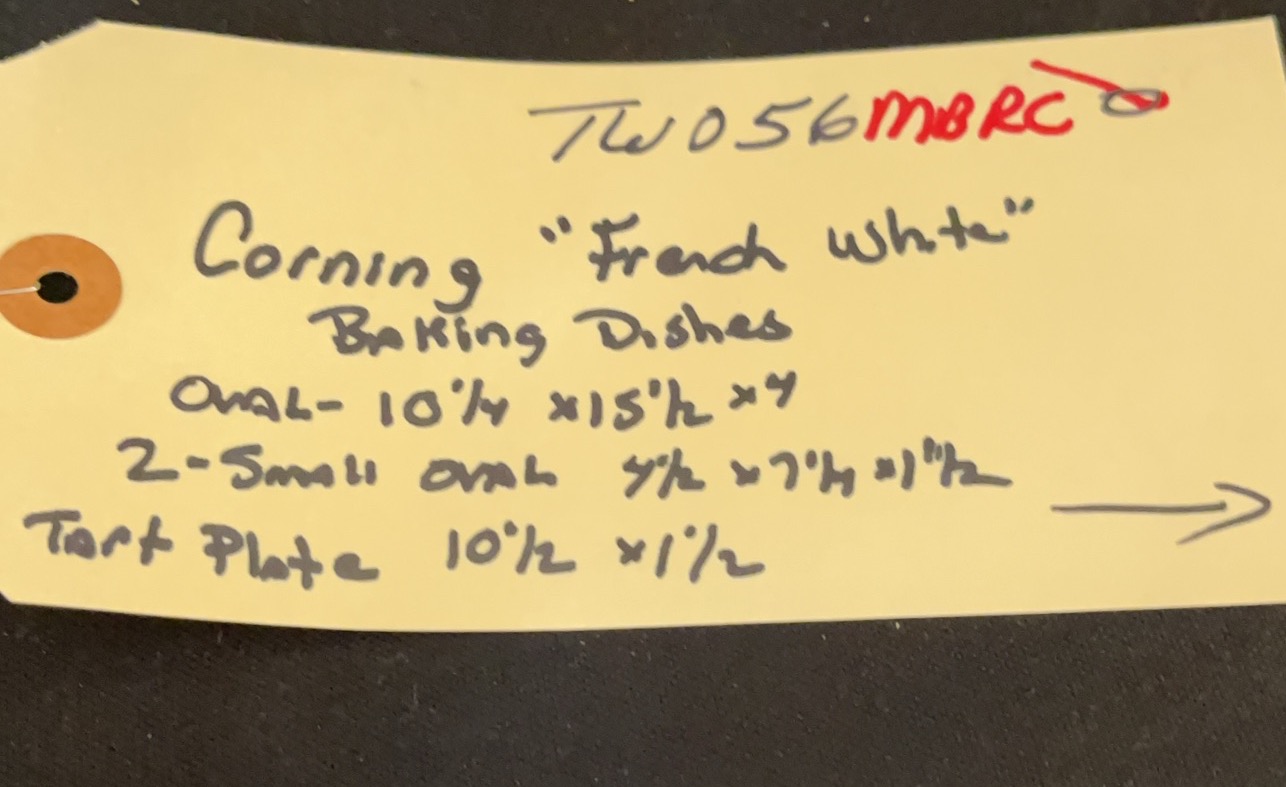 TW056MBRC
Corning "French White"
Baking Dishes
OVAL- 10 1/4 x 15 1/2 x 4
2-Small OVAL 4 1/2 x 7 1/4 x 1 1/2
Tart Plate 10 1/2 x 1 1/2